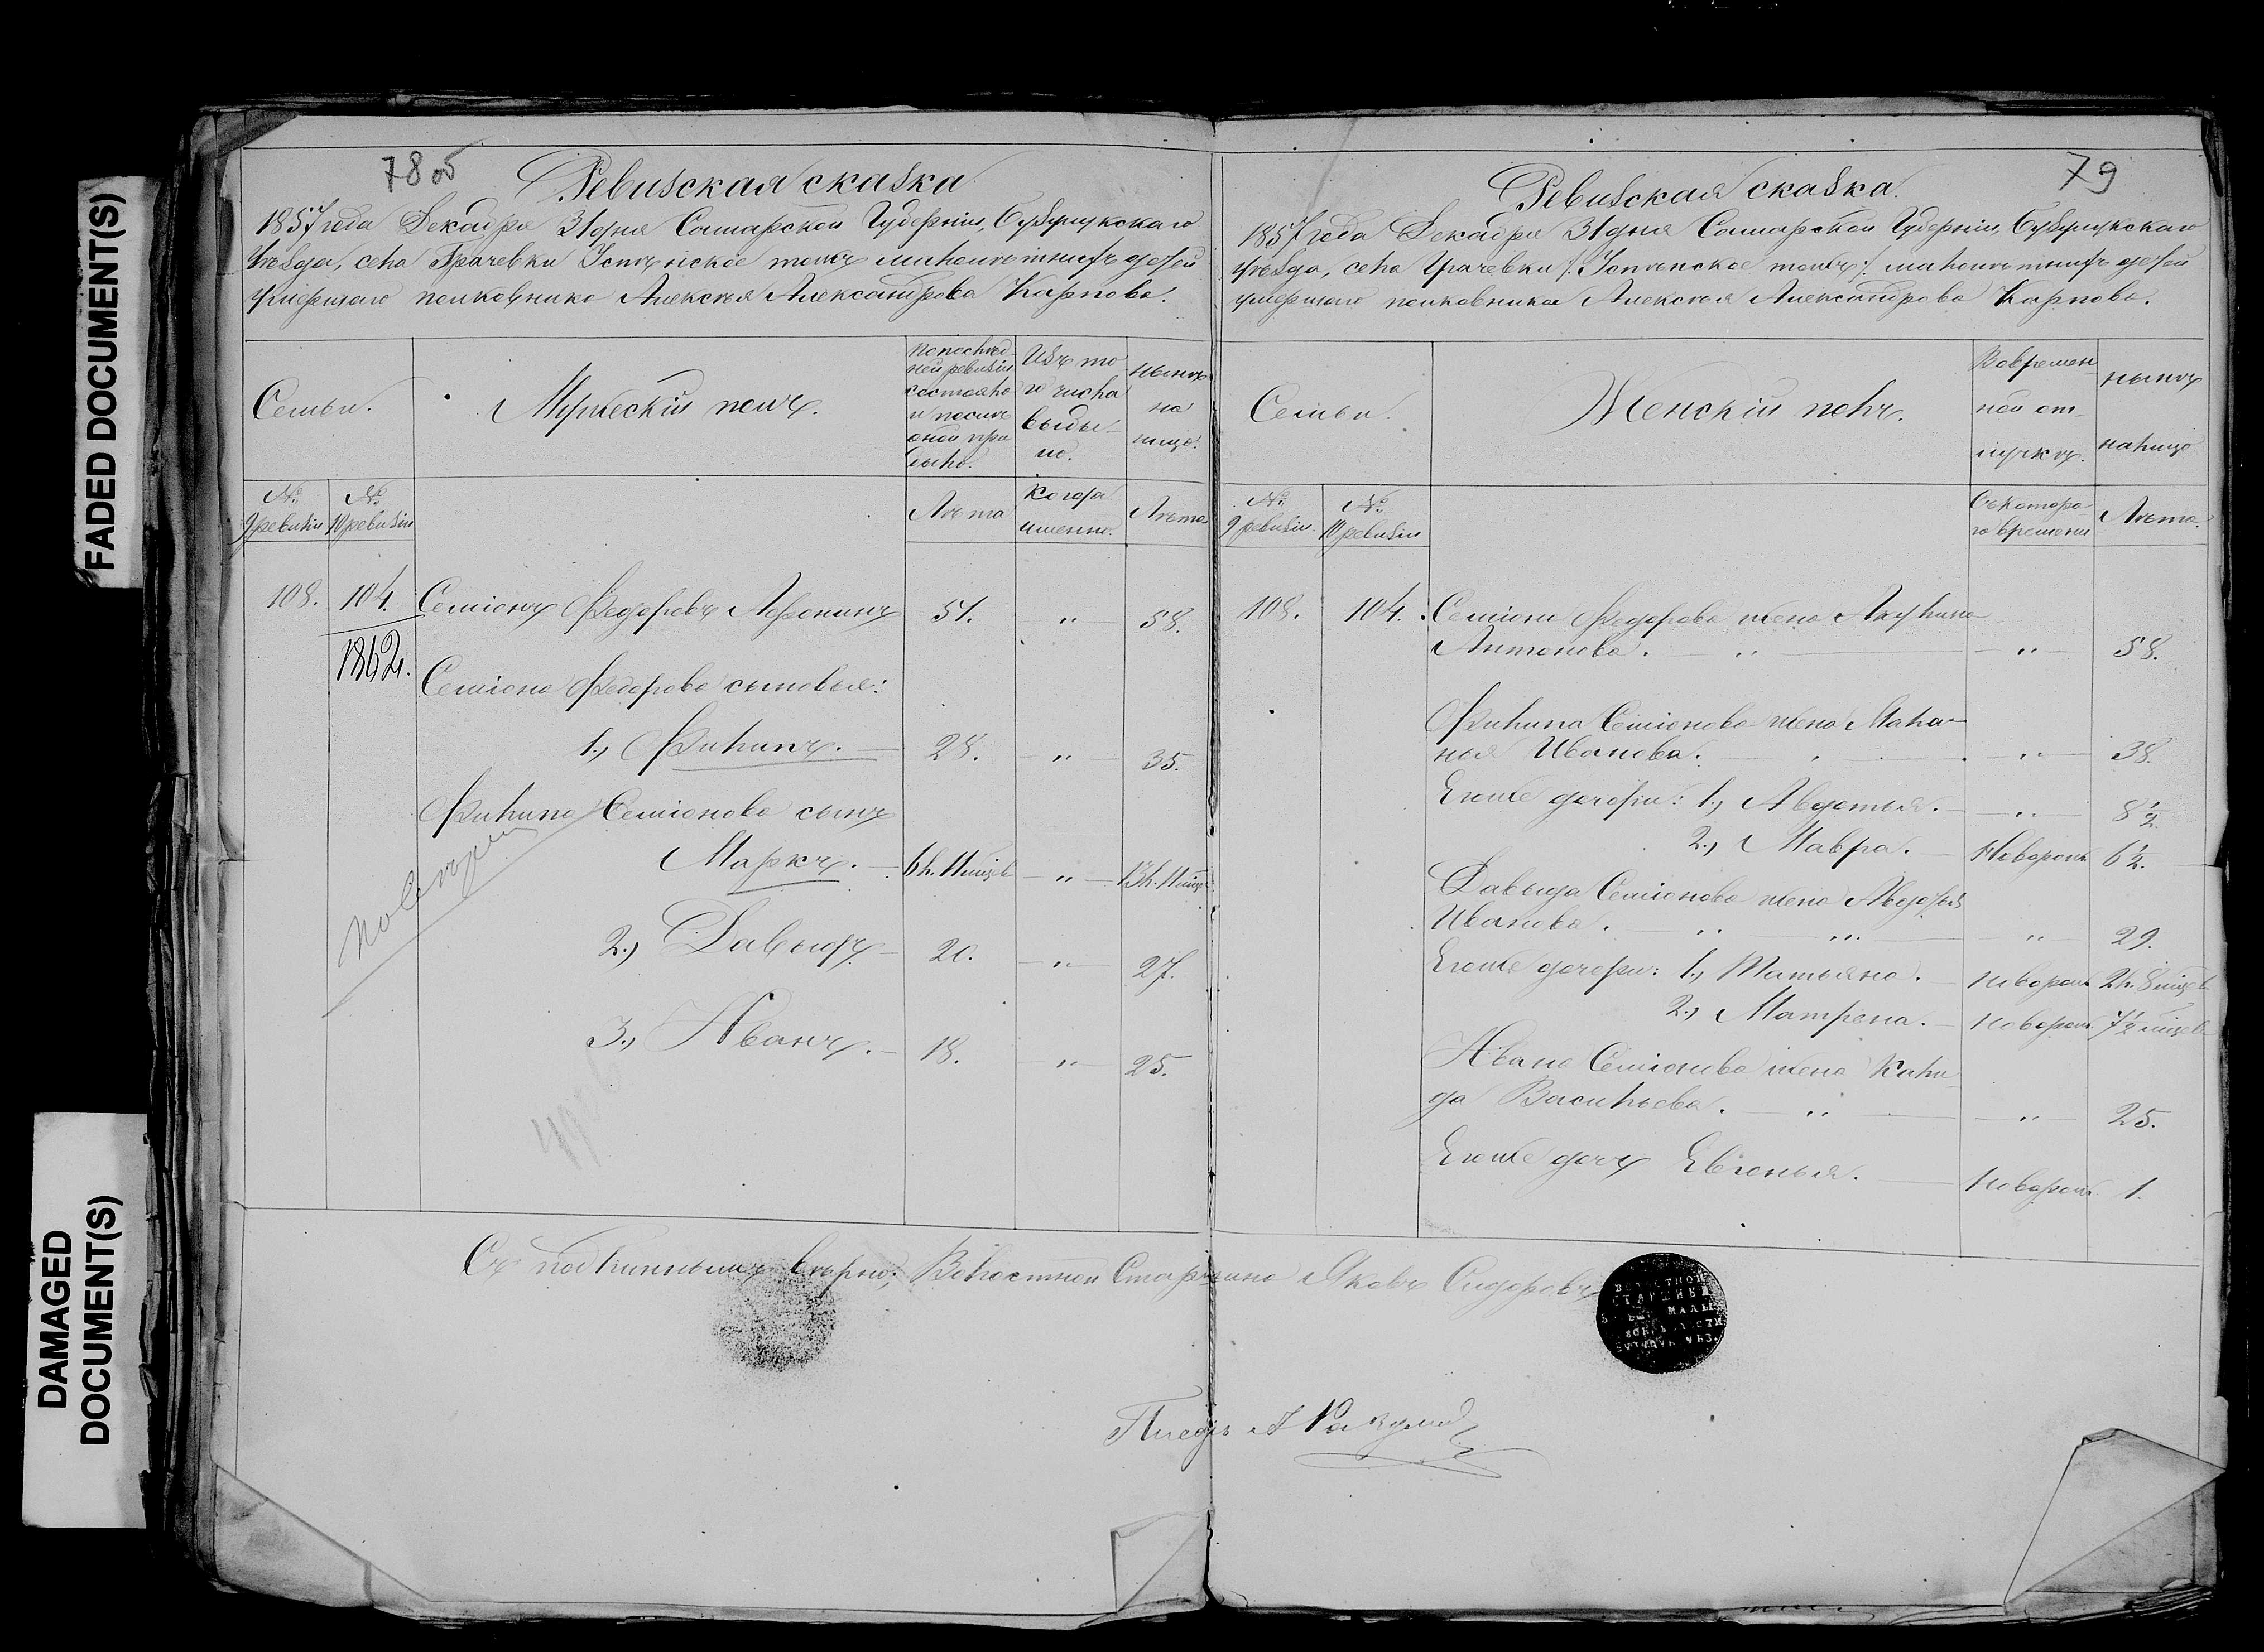 FADED DOCUMENT(S)
DAMAGED
DOCUMENT(S)
78 об
Ревизская сказка
1857 года Декабря 31 дня Самарской Губернии, Бузулукскаго
уѣзда, села Грачевки тожъ малолѣтнихъ детей
умершаго полковника Алексѣя Александрова Карпова.
Семьи.
Мужескій полъ.
По послѣд-
ней ревизіи
состояло
и послѣ
оной при
было.
Изъ то
го числа
выбы-
ло.
нынѣ
на
лицо.
№
9 ревизіи
№
10 ревизіи
Лѣта
Когда
именно.
Лѣта
108.
104.
1862.
Семіонъ Федоровъ Афонинъ
51.
"
58.
Семіона Федорова сыновья:
1., Филипъ.
28.
"
35.
Филипа Семіонова сынъ
Маркъ.
6 л. 11 мѣсяц
"
13 л. 11 мѣсяц
2., Давыдъ
20.
"
27.
3., Иванъ.
18.
"
25.
79
Ревизская сказка.
1857 года Декабря 31 дня Самарской Губерніи, Бузулукскаго
уѣзда, села Грачевки тожъ малолѣтнихъ детей
умершаго полковника Алексѣя Александрова Карпова.
Семьи.
Женскій полъ.
Во времен-
ной от-
лучкѣ.
нынѣ
налицо
№
9 ревизіи.
№
10 ревизіи
Съ которо-
го времени
Лѣта.
108.
104.
Семіона Федорова жена Акулина
Антонова.
"
58.
Филипа Семіонова жена Мала-
нья Иванова.
"
38.
Егоже дочери: 1., Авдотья.
"
8½
2., Мавра.
Новорож
6½.
Давыда Семіонова жена Авдотья
Иванова.
"
29.
Егоже дочери: 1., Татьяна.
новорож
2 л. 8 мѣсяц
2., Матрена.
новорож
7½ мѣсяц
Ивана Семіонова жена Кали-
да Васильева.
"
25.
Егоже дочь Евгенья.
новорож
1.
Съ подлиннымъ вѣрно; Волостной Старшина Яковъ Сидоровъ
ВОЛОСТНОЙ
СТАРШИНЫ